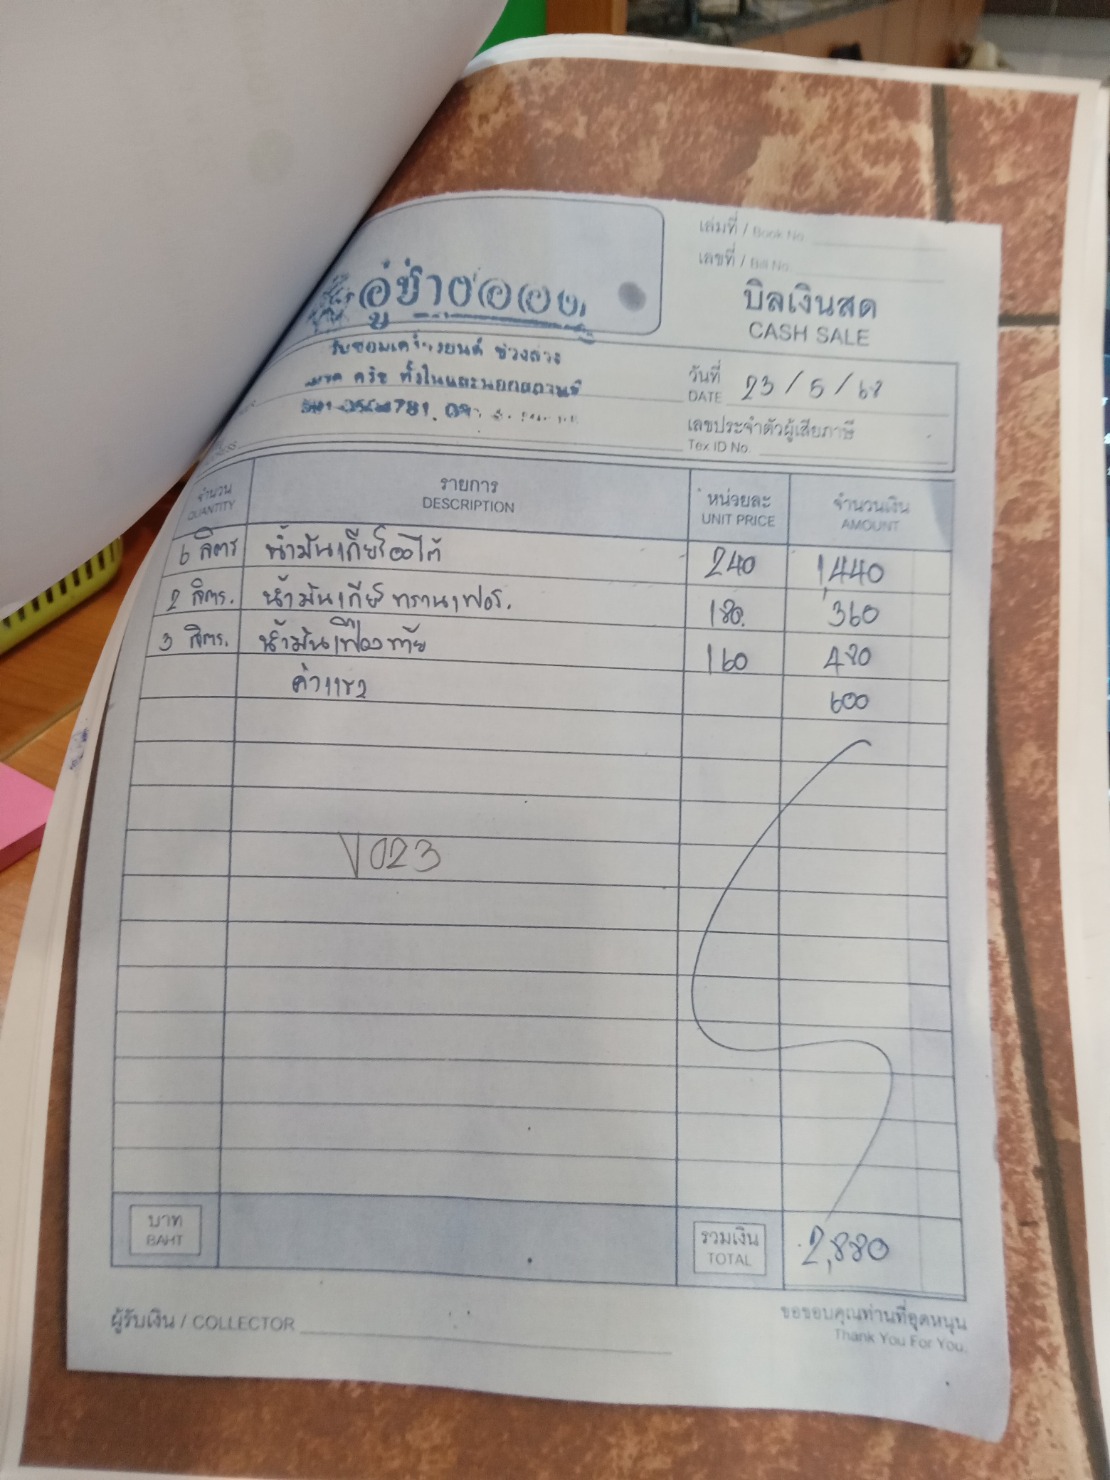 เล่มที่ / Book No.
เลขที่ / Bill No.
บิลเงินสด
CASH SALE
อู่ช่าง
วันที่ 23 / 5 / 68
DATE
เลขประจำตัวผู้เสียภาษี
Tex ID No.
จำนวน รายการ หน่วยละ จำนวนเงิน
QUANTITY DESCRIPTION UNIT PRICE AMOUNT
6 ลิตร น้ำมันเกียร์ออโต้ 240 1,440
2 ลิตร. น้ำมันเกียร์ ทรานเฟอร. 180. 360
3 ลิตร. น้ำมันเฟืองท้าย 160 480
ค่าแรง 600
V023
บาท รวมเงิน 2,880
BAHT TOTAL
ผู้รับเงิน / COLLECTOR
ขอขอบคุณท่านที่อุดหนุน
Thank You For You.